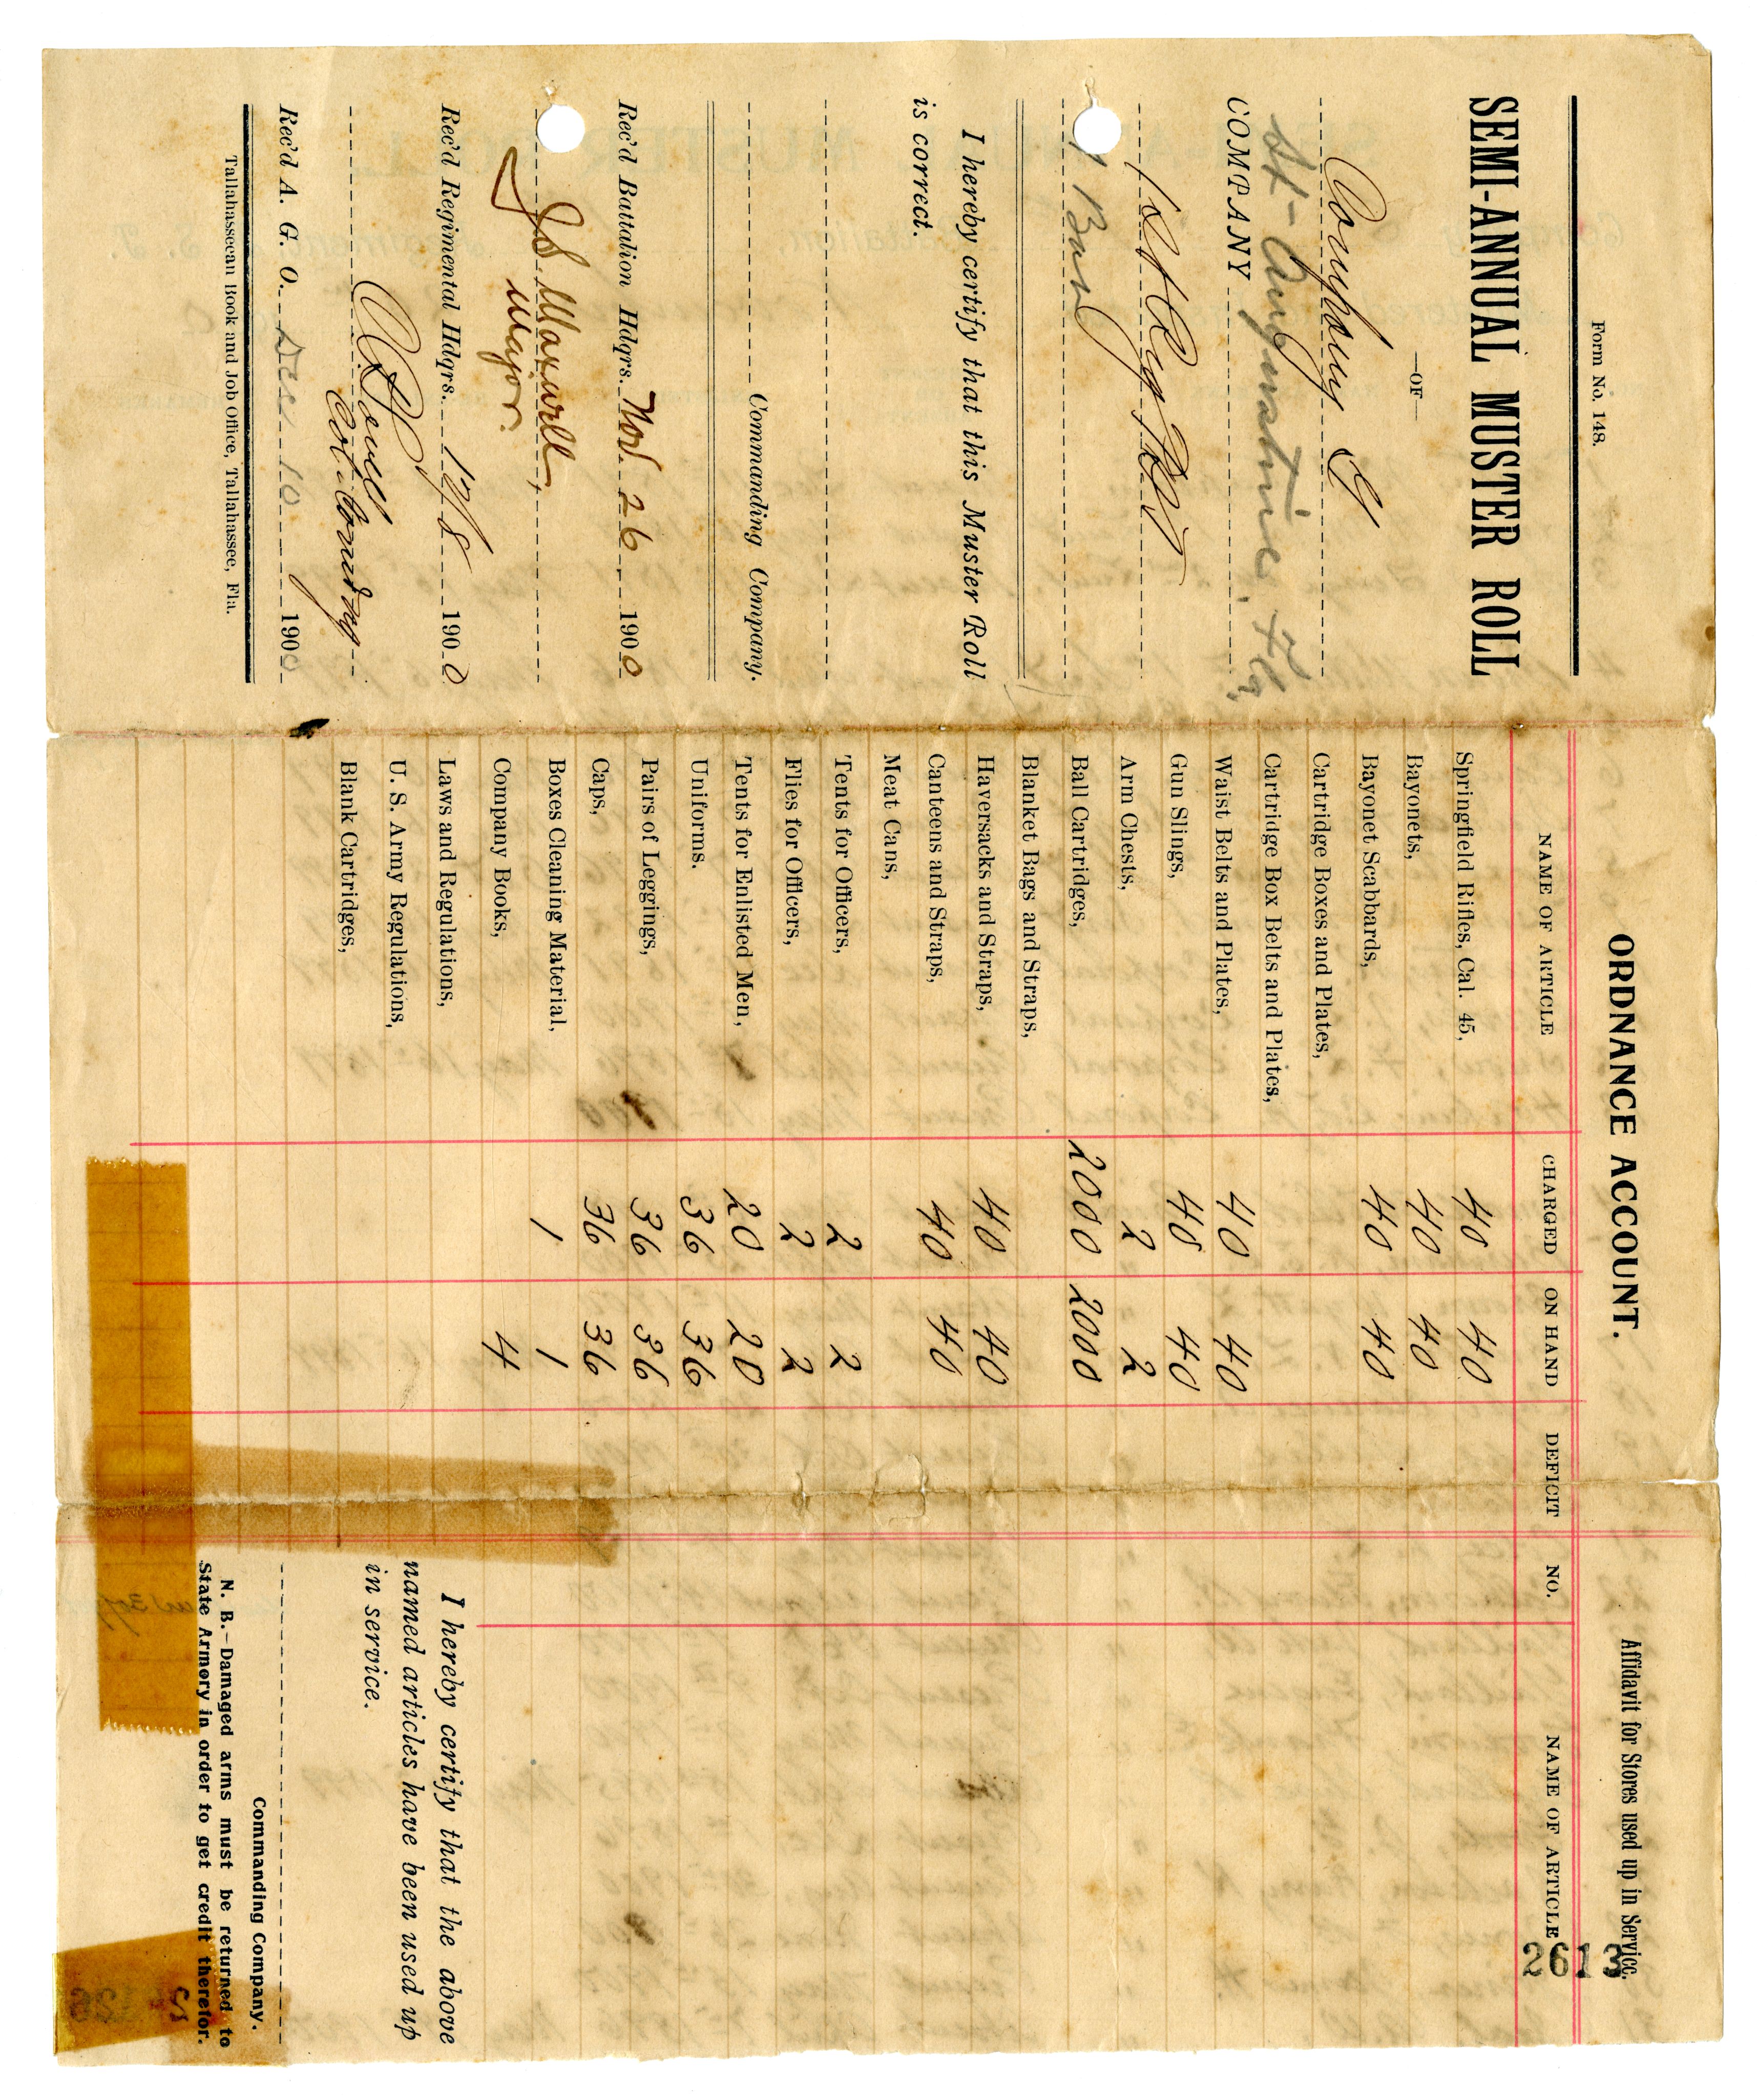 Form No. 148.
SEMI-ANNUAL MUSTER ROLL
—OF—
Company G
St- Augustine, Fla,
COMPANY
1st Reg
is correct.
I hereby certify that this Muster Roll
is correct.
Commanding Company.
Rec'd Battalion Hdqrs. Nov. 26. 1900
Maxwell,
Major.
Rec'd Regimental Hdqrs. 12/8 1900
Col. Comdg
Rec'd A. G. O. Dec 10 1900
Tallahasseean Book and Job Office, Tallahassee, Fla.
ORDNANCE ACCOUNT.
NAME OF ARTICLE CHARGED ON HAND DEFICIT
Springfield Rifles, Cal. 45, 40 40
Bayonets, 40 40
Bayonet Scabbards, 40 40
Cartridge Boxes and Plates,
Cartridge Box Belts and Plates,
Waist Belts and Plates, 40 40
Gun Slings, 40 40
Arm Chests, 2 2
Ball Cartridges, 2000 2000
Blanket Bags and Straps,
Haversacks and Straps, 40 40
Canteens and Straps, 40 40
Meat Cans,
Tents for Officers, 2 2
Flies for Officers, 2 2
Tents for Enlisted Men, 20 20
Uniforms. 36 36
Pairs of Leggings, 36 36
Caps, 36 36
Boxes Cleaning Material, 1 1
Company Books, 4
Laws and Regulations,
U. S. Army Regulations,
Blank Cartridges,
Affidavit for Stores used up in Service.
NO. NAME OF ARTICLE
2613
I hereby certify that the above
named articles have been used up
in service.
Commanding Company.
N. B.—Damaged arms must be returned to
State Armory in order to get credit therefor.